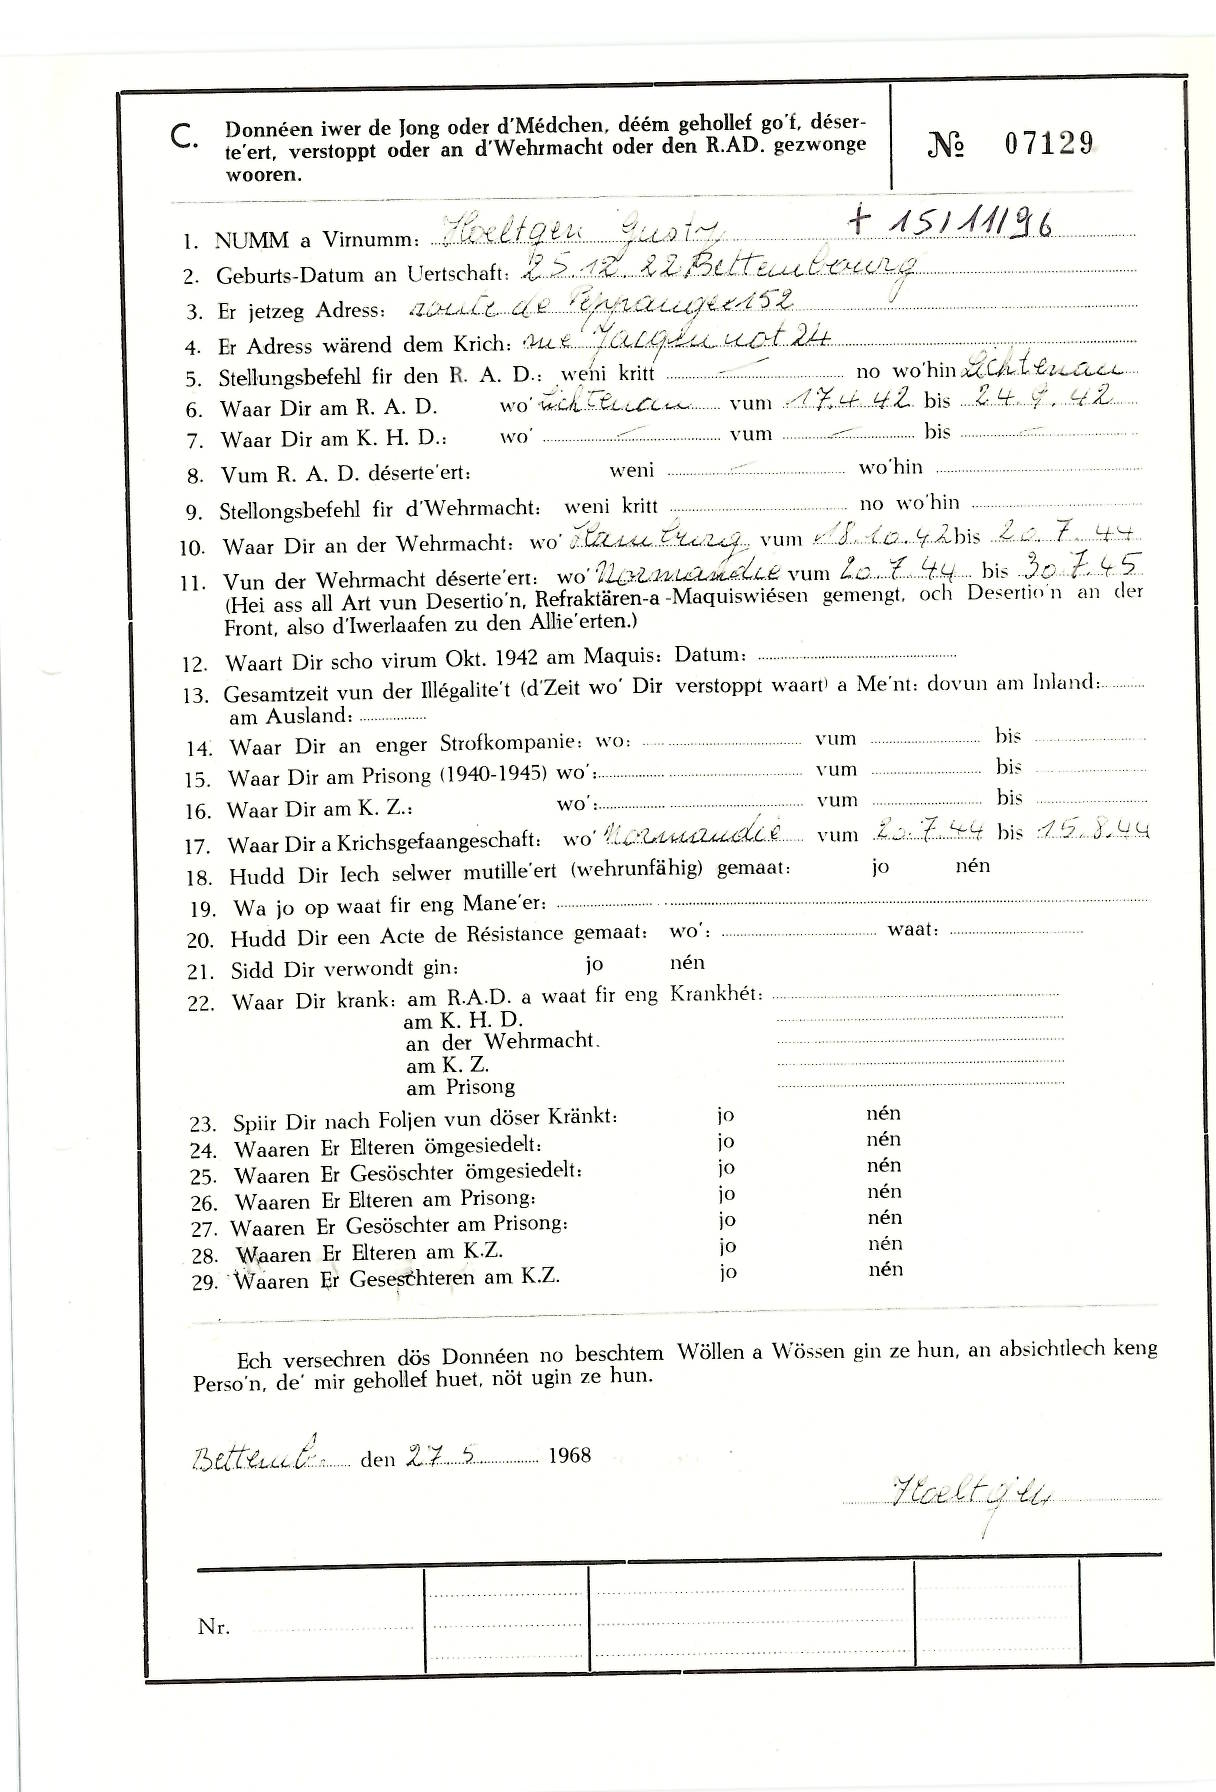 C. Donnéen iwer de Jong oder d'Médchen, déém gehollef go'f, déser-
te'ert, verstoppt oder an d'Wehrmacht oder den R.AD. gezwonge
wooren.
№ 07129
1. NUMM a Virnumm: Hoeltgen Gusty + 15/11/96
2. Geburts-Datum an Uertschaft: 25.12.22 Bettembourg
3. Er jetzeg Adress: route de Peppange 152
4. Er Adress wärend dem Krich: rue Jacquinot 24
5. Stellungsbefehl fir den R. A. D.: weni kritt — no wo'hin Lichtenau
6. Waar Dir am R. A. D. wo' Lichtenau vum 17.4.42 bis 24.9.42
7. Waar Dir am K. H. D.: wo' — vum — bis —
8. Vum R. A. D. déserte'ert: weni — wo'hin
9. Stellongsbefehl fir d'Wehrmacht: weni kritt no wo'hin
10. Waar Dir an der Wehrmacht: wo' Hamburg vum 18.10.42 bis 20.7.44
11. Vun der Wehrmacht déserte'ert: wo' Normandie vum 20.7.44 bis 30.7.45
(Hei ass all Art vun Desertio'n, Refraktären-a -Maquiswiésen gemengt, och Desertio'n an der
Front, also d'Iwerlaafen zu den Allie'erten.)
12. Waart Dir scho virum Okt. 1942 am Maquis: Datum:
13. Gesamtzeit vun der Illégalite't (d'Zeit wo' Dir verstoppt waart) a Me'nt: dovun am Inland:
am Ausland:
14. Waar Dir an enger Strofkompanie: wo: vum bis
15. Waar Dir am Prisong (1940-1945) wo': vum bis
16. Waar Dir am K. Z.: wo': vum bis
17. Waar Dir a Krichsgefaangeschaft: wo' Normandie vum 20.7.44 bis 15.8.44
18. Hudd Dir Iech selwer mutille'ert (wehrunfähig) gemaat: jo nén
19. Wa jo op waat fir eng Mane'er:
20. Hudd Dir een Acte de Résistance gemaat: wo': waat:
21. Sidd Dir verwondt gin: jo nén
22. Waar Dir krank: am R.A.D. a waat fir eng Krankhét:
am K. H. D.
an der Wehrmacht.
am K. Z.
am Prisong
23. Spiir Dir nach Foljen vun döser Kränkt: jo nén
24. Waaren Er Elteren ömgesiedelt: jo nén
25. Waaren Er Gesöschter ömgesiedelt: jo nén
26. Waaren Er Elteren am Prisong: jo nén
27. Waaren Er Gesöschter am Prisong: jo nén
28. Waaren Er Elteren am K.Z. jo nén
29. Waaren Er Geseschteren am K.Z. jo nén
Ech versechren dös Donnéen no beschtem Wöllen a Wössen gin ze hun, an absichtlech keng
Perso'n, de' mir gehollef huet, nöt ugin ze hun.
Bettemb. den 27.5. 1968
Hoeltgen
Nr.